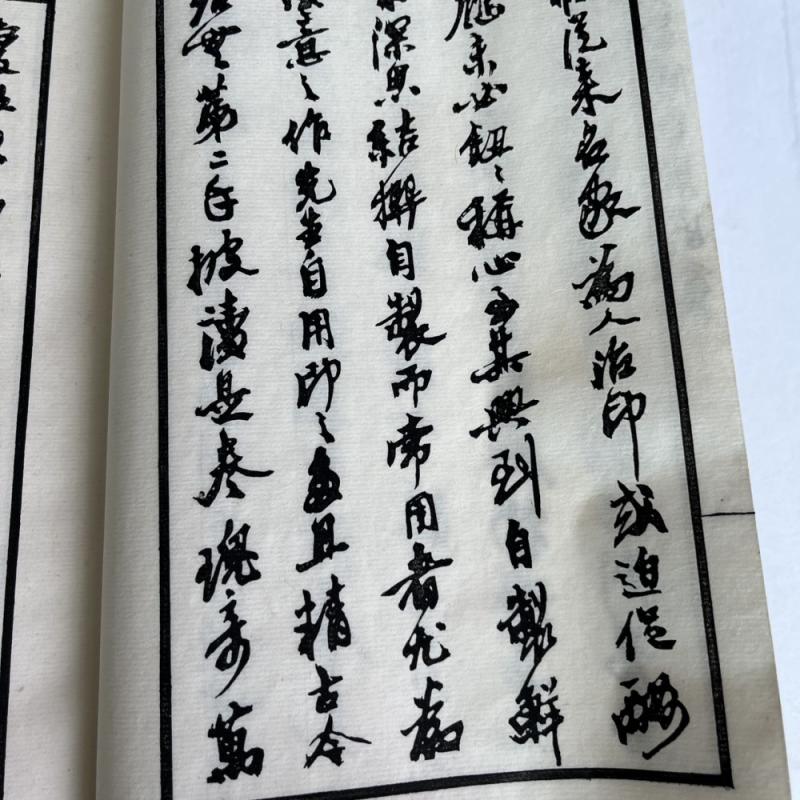 從来名家為人治印或迫促酬
應未必鈕〻稱心至其興到自製鮮
深思結撰自製而常用者尤為
意之作先生自用印之多且精古今
無第二手披讀是卷瑰奇萬